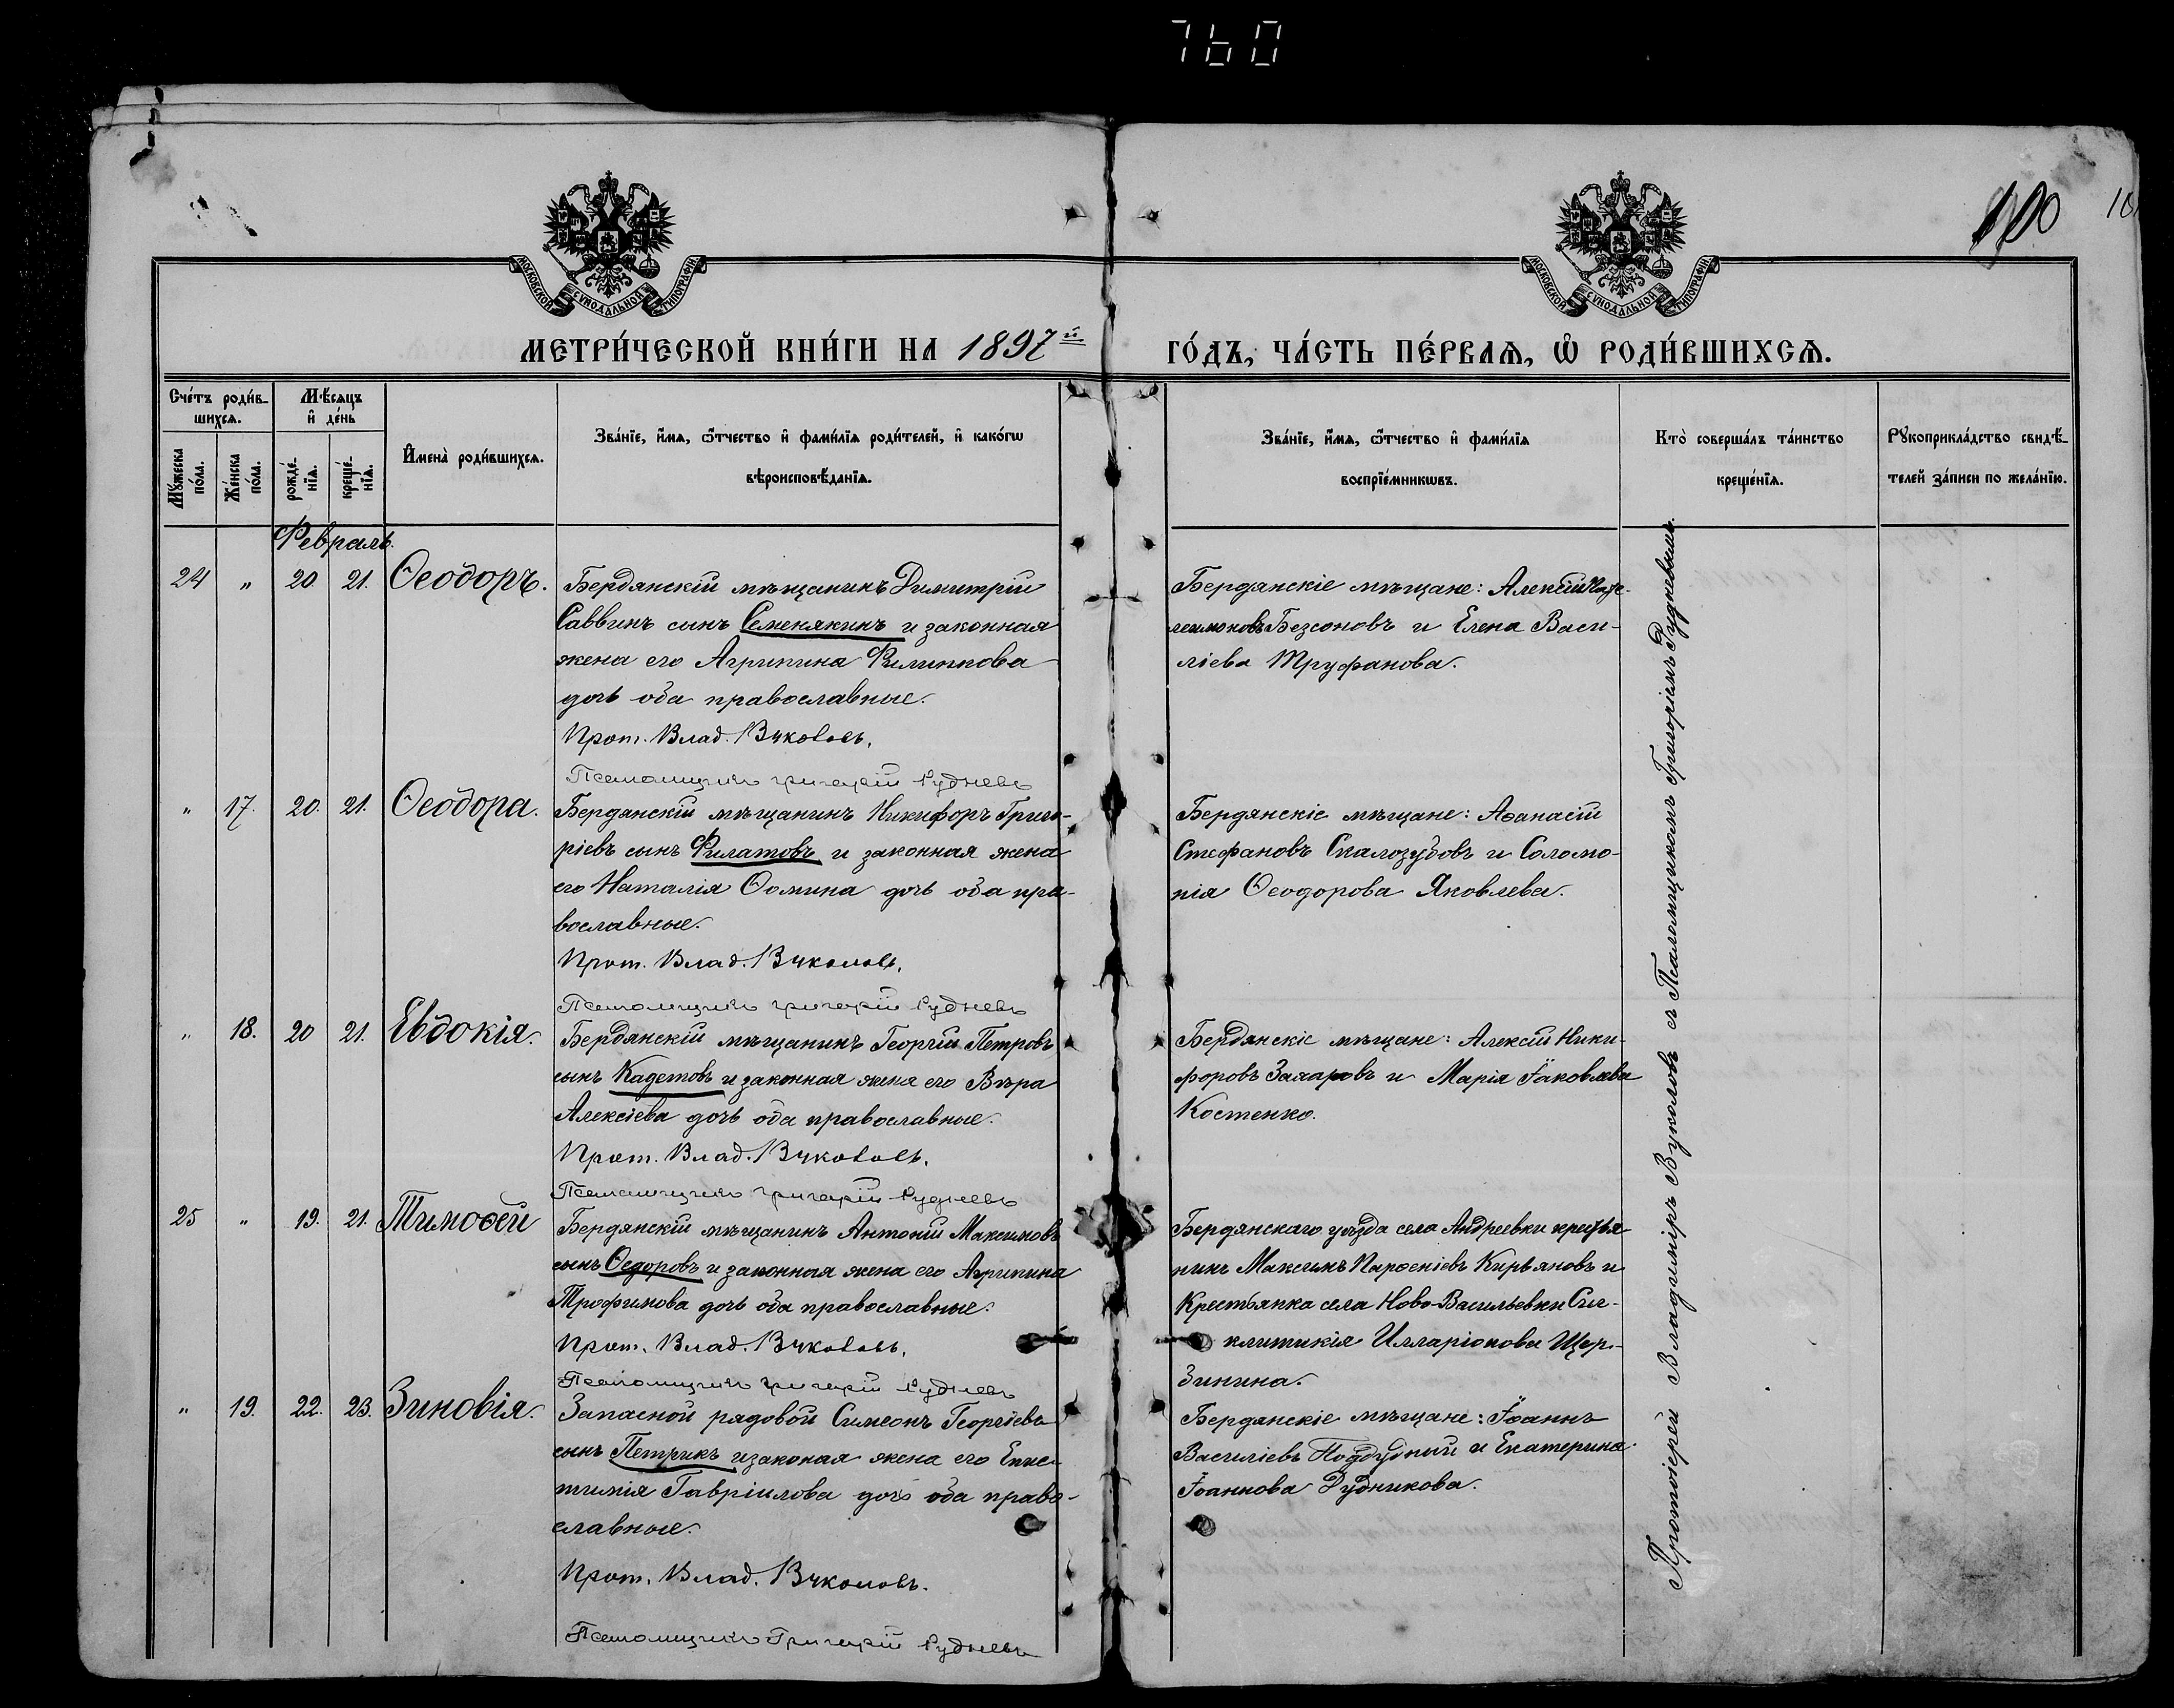 760
100
МОСКОВСКОЙ СѴНОДАЛЬНОЙ ТИПОГРАФІИ
МОСКОВСКОЙ СѴНОДАЛЬНОЙ ТИПОГРАФІИ
МЕТРИ́ЧЕСКОЙ КНИ́ГИ НА 1897й ГО́ДЪ, ЧА́СТЬ ПЕ́РВАѦ, Ѽ РОДИ́ВШИХСѦ.
Сче́тъ роди́в-
шихсѧ.
Мѣ́сѧцъ
и҆ де́нь
Мꙋ́жеска
по́ла.
Же́нска
по́ла.
рожде́-
нїѧ.
креще́-
нїѧ.
И҆мена̀ роди́вшихсѧ.
Зва́нїе, и҆́мѧ, ѻ҆́тчество и҆ фами́лїѧ роди́телей, и҆ како́гѡ
вѣроисповѣ́данїѧ.
Зва́нїе, и҆́мѧ, ѻ҆́тчество и҆ фами́лїѧ
воспрїе́мникѡвъ.
Кто̀ соверша́лъ та́инство
креще́нїѧ.
Рꙋкоприкла́дство свидѣ́-
телей за́писи по жела́нїю.
Февраль.
24 " 20 21. Ѳеодоръ.
Бердянскій мѣщанинъ Димитрій
Саввинъ сынъ Семенякинъ и законная
жена его Агрипина Филиппова
дочь оба православные.
Прот. Влад. Вуколовъ.
Псаломщикъ Григорій Рудневъ
Бердянскіе мѣщане: Алексій
Безсоновъ и Елена Васи-
ліева Труфанова.
" 17. 20. 21. Ѳеодора.
Бердянскій мѣщанинъ Никифоръ Григо-
ріевъ сынъ Филатовъ и законная жена
его Наталія Ѳомина дочь оба пра-
вославные.
Прот. Влад. Вуколовъ.
Псаломщикъ Григорій Рудневъ
Бердянскіе мѣщане: Аѳанасій
Стефановъ Скалозубовъ и Соломо-
нія Ѳеодорова Яковлева.
" 18. 20 21. Евдокія.
Бердянскій мѣщанинъ Георгій Петровъ
сынъ Кадетовъ и законная жена его Вѣра
Алексіева дочь оба православные.
Прот. Влад. Вуколовъ.
Псаломщикъ Григорій Рудневъ
Бердянскіе мѣщане: Алексій Ники-
форовъ Захаровъ и Марія Іаковлева
Костенко.
25 " 19. 21. Тимоѳей
Бердянскій мѣщанинъ Антоній Максимовъ
сынъ Ѳедоровъ и законная жена его Агрипина
Трофимова дочь оба православные.
Прот. Влад. Вуколовъ.
Псаломщикъ Григорій Рудневъ
Бердянскаго уѣзда села Андреевки крестья-
нинъ Максимъ Парѳеніевъ Кирьяновъ и
Крестьянка села Ново-Васильевки Син-
клитикія Илларіонова Щер-
бинина.
" 19. 22. 23. Зиновія.
Запасной рядовой Симеонъ Георгіевъ
сынъ Петрикъ и законая жена его Епис-
тимія Гавріилова дочь оба право-
славные.
Прот. Влад. Вуколовъ.
Псаломщикъ Григорій Рудневъ
Бердянскіе мѣщане: Іоаннъ
Василіевъ Поддубный и Екатерина
Іоаннова Дудникова.
Протоіерей Владиміръ Вуколовъ съ Псаломщикомъ Григоріемъ Рудневымъ.